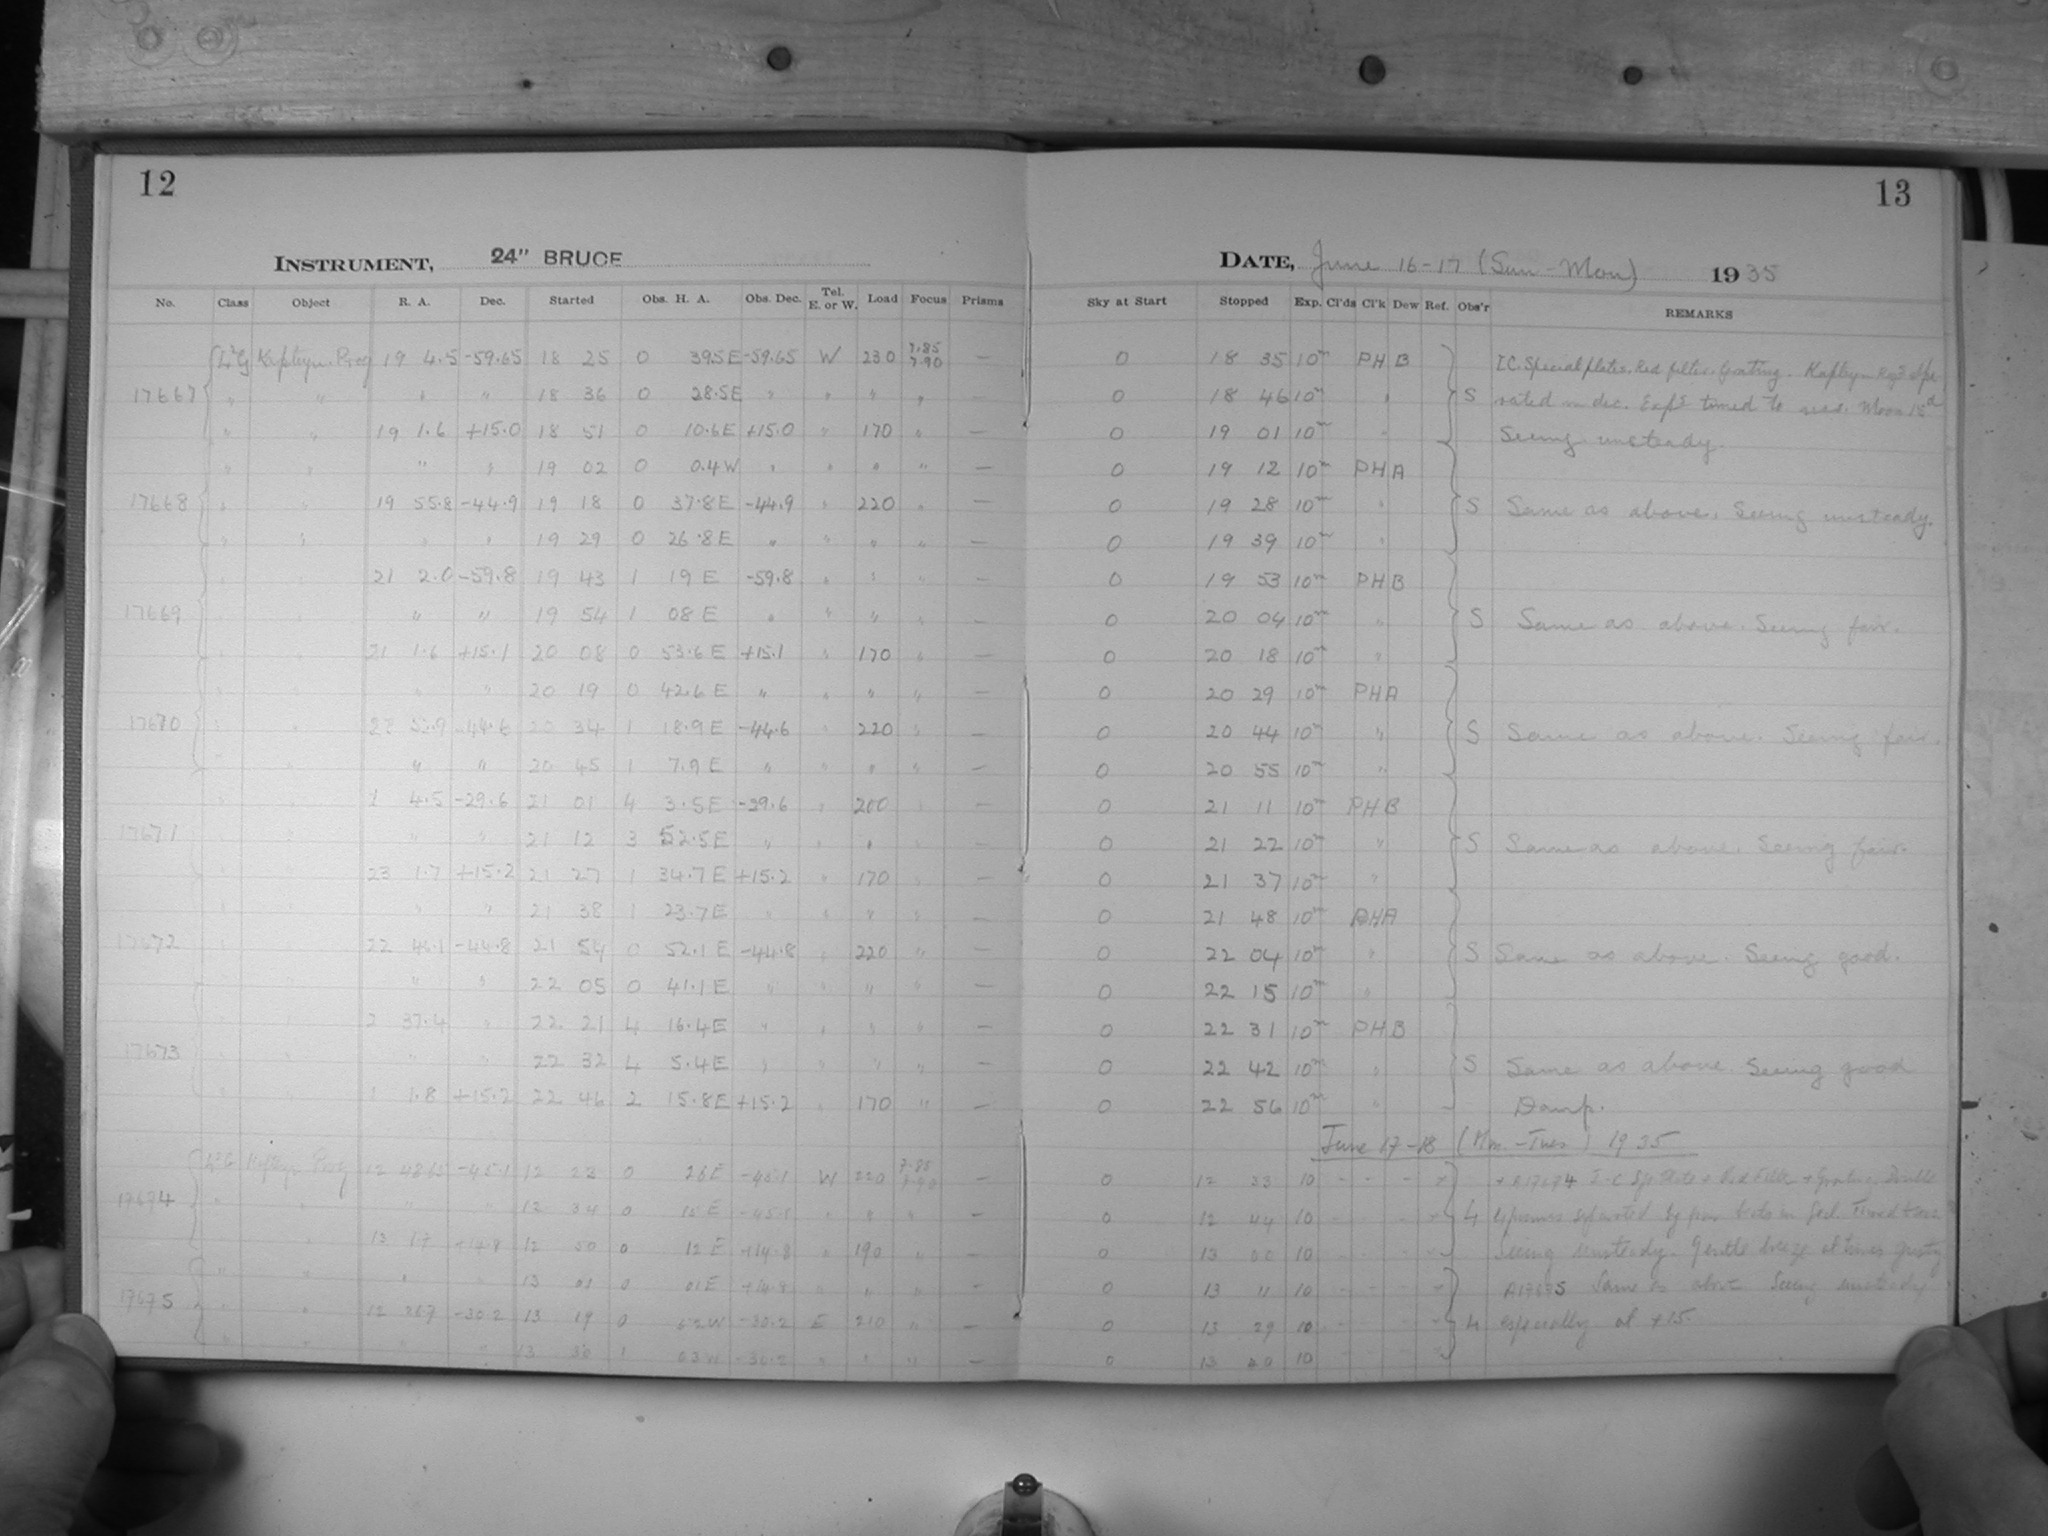 12
13
INSTRUMENT, 24" BRUCE
DATE, June 16-17 (Sun-Mon) 1935
No. Class Object R. A. Dec. Started Obs. H. A. Obs. Dec. Tel. E. or W. Load Focus Prisms Sky at Start Stopped Exp. Cl'ds Cl'k Dew Ref. Obs'r REMARKS
Kapteyn. Prog 19 4.5 -59.65 18 25 0 39.5 E -59.65 W 230 7.85 7.90 — 0 18 35 10m PH B I.C. Special plates. Red filter. Grating. Kapteyn
17667 " " " " 18 36 0 28.5E " " " " — 0 18 46 10m " S in dec. timed to Moon 15d
" " 19 1.6 +15.0 18 51 0 10.6E +15.0 " 170 " — 0 19 01 10m " Seeing unsteady.
" " " " 19 02 0 0.4W " " " " — 0 19 12 10m PH A
17668 " " 19 55.8 -44.9 19 18 0 37.8E -44.9 " 220 " — 0 19 28 10m " S Same as above. Seeing unsteady.
" " " " 19 29 0 26.8E " " " " — 0 19 39 10m "
21 2.0 -59.8 19 43 1 19 E -59.8 " " " — 0 19 53 10m PH B
17669 " " 19 54 1 08 E " " " " — 0 20 04 10m " S Same as above. Seeing fair.
21 1.6 +15.1 20 08 0 53.6 E +15.1 " 170 " — 0 20 18 10m "
" " 20 19 0 42.6 E " " " " — 0 20 29 10m PHA
17670 -44.6 20 34 1 18.9 E -44.6 " 220 " — 0 20 44 10m " S Same as above. Seeing fair.
" " 20 45 1 7.9 E " " " " — 0 20 55 10m "
1 4.5 -29.6 21 01 4 3.5E -29.6 " 200 " — 0 21 11 10m PH B
17671 " " 21 12 3 52.5E " " " " — 0 21 22 10m " S Same as above. Seeing fair.
23 1.7 +15.2 21 27 1 34.7E +15.2 " 170 " — 0 21 37 10m "
" " 21 38 1 23.7E " " " " — 0 21 48 10m PHA
17672 22 -44.8 21 54 0 52.1 E -44.8 " 220 " — 0 22 04 10m " S Same as above. Seeing good.
" " 22 05 0 41.1E " " " " — 0 22 15 10m "
2 37.4 " 22 21 4 16.4E " " " " — 0 22 31 10m PH B
17673 " " 22 32 4 5.4E " " " " — 0 22 42 10m " S Same as above. Seeing good
1 1.8 +15.2 22 46 2 15.8E +15.2 " 170 " — 0 22 56 10m " Damp.
June 17-18 (Mon.-Tues) 1935
Kapteyn Prog 12 -45.1 12 23 0 26E -45.1 W 220 7.85 7.90 — 0 12 33 10 - - - Red Filter + Grating. Double
17674 " " " " 12 34 0 15 E -45.1 " " " — 0 12 44 10 - - 4 exposures separated by
13 17 +14.8 12 50 0 12 E +14.8 " 190 " — 0 13 00 10 - - - Seeing unsteady. Gentle breeze at times gusty
" " 13 01 0 01E +14.8 " " " — 0 13 11 10 - - - A17675 Same as above Seeing unsteady
17675 " " 12 26.7 -30.2 13 19 0 62W -30.2 E 210 " — 0 13 29 10 - - - 4 especially at +15
" " " " 13 30 -30.2 " " " — 0 13 40 10